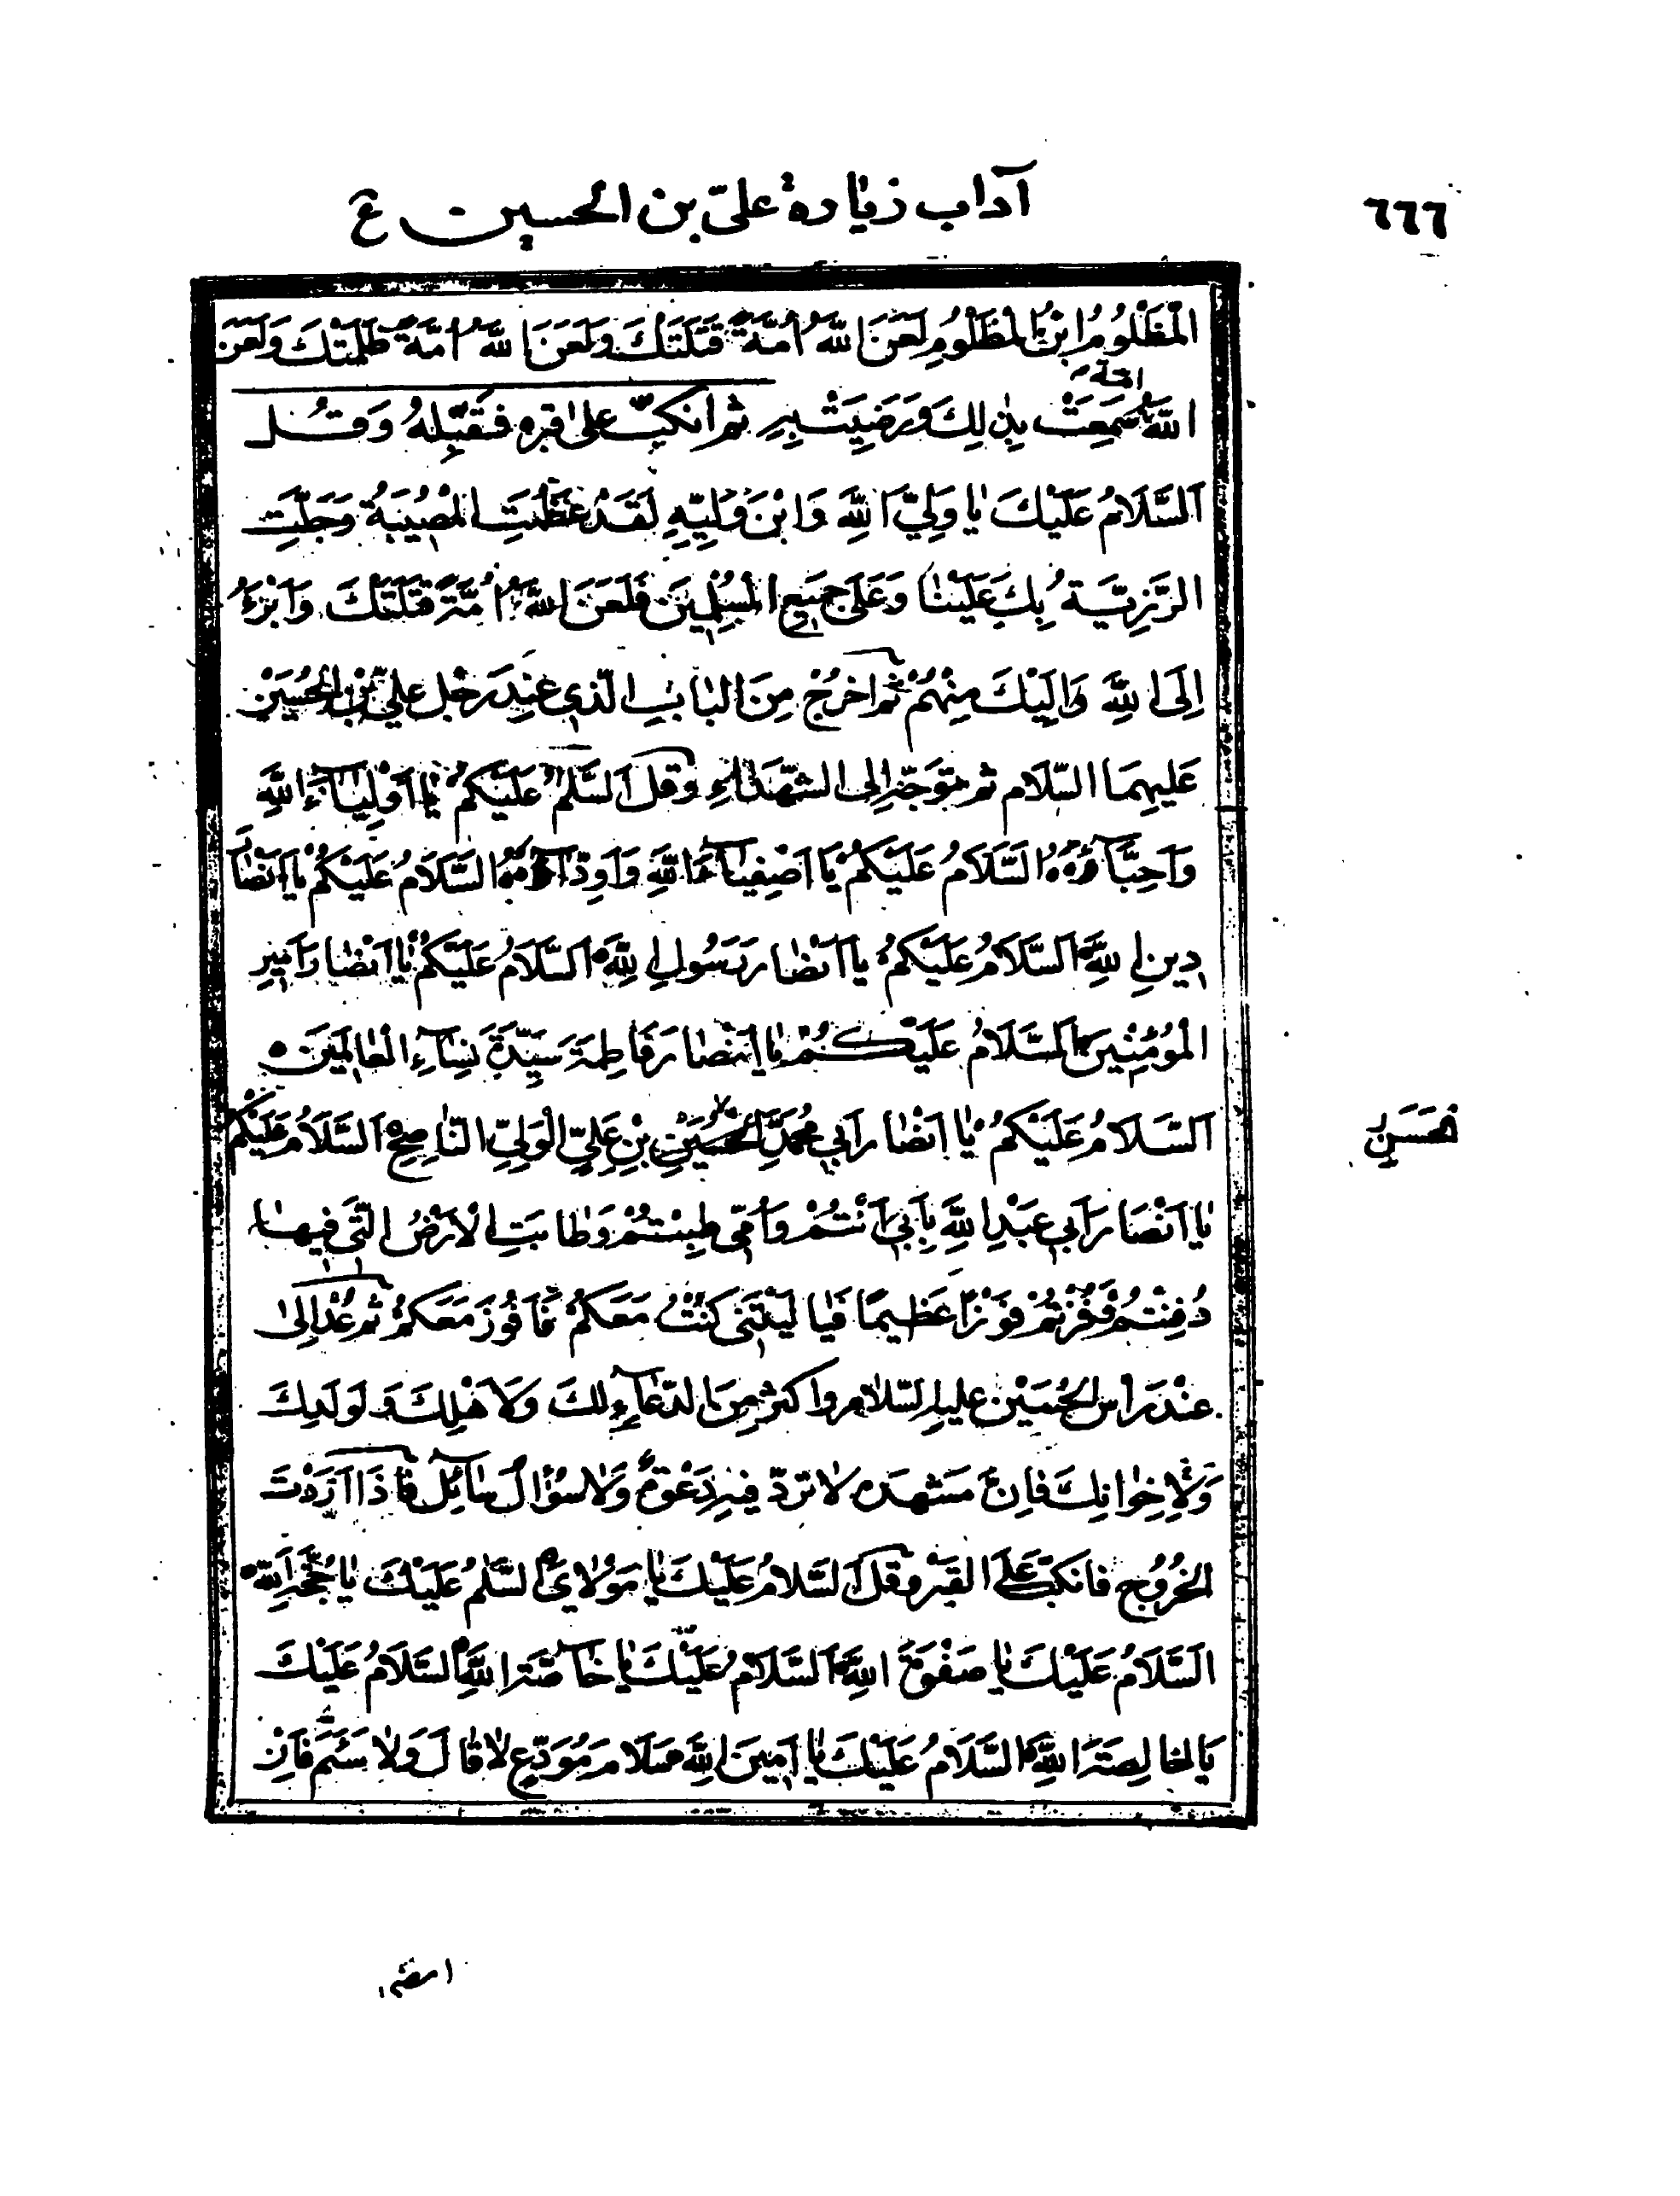 ٦٦٦
آداب زیاده علیّ بن الحسین ع
الْمَظْلُومُ ابْنُ الْمَظْلُومِ لَعَنَ اللّٰهُ اُمَّةً قَتَلَتْكَ وَلَعَنَ اللّٰهُ اُمَّةً ظَلَمَتْكَ وَلَعَنَ
امّة
اللّٰهُ سَمِعَتْ بِذٰلِكَ وَرَضِيَتْ بِهِ ثم انكبّ على قبره فَقَبِّلْهُ وَقُل
اَلسَّلَامُ عَلَيْكَ يٰا وَلِيَّ اللّٰهِ وَابْنَ وَلِيِّهِ لَقَدْ عَظُمَتِ الْمُصِيبَةُ وَجَلَّتِ
الرَّزِيَّةُ بِكَ عَلَيْنٰا وَعَلٰى جَمِيعِ الْمُسْلِمِينَ فَلَعَنَ اللّٰهُ اُمَّةً قَتَلَتْكَ وَاَبْرَءُ
اِلَى اللّٰهِ وَاِلَيْكَ مِنْهُمْ ثم اخرُجْ مِنَ البٰابِ الّذي عِنْدَ رِجْلِ عليِّ بْنِ الْحُسَيْنِ
عَلَيهِمَا السّلام ثم توجّه اِلى الشّهَدٰاءِ وقل اَلسَّلٰمُ عَلَيْكُمْ يٰا اَوْلِيٰآءَ اللّٰهِ
وَاَحِبَّآءَهُ اَلسَّلَامُ عَلَيْكُمْ يٰا اَصْفِيٰآءَ اللّٰهِ وَاَوِدّٰآءَهُ اَلسَّلَامُ عَلَيْكُمْ يٰا اَنْصٰارَ
دِينِ اللّٰهِ اَلسَّلَامُ عَلَيْكُمْ يٰا اَنْصٰارَ رَسُولِ اللّٰهِ اَلسَّلَامُ عَلَيْكُمْ يٰا اَنْصٰارَ اَمِيرِ
الْمُؤْمِنِينَ اَلسَّلَامُ عَلَيْكُمْ يٰا اَنْصٰارَ فٰاطِمَةَ سَيِّدَةِ نِسٰآءِ الْعٰالَمِينَ
اَلسَّلَامُ عَلَيْكُمْ يٰا اَنْصٰارَ اَبِي مُحَمَّدٍ الْحُسَيْنِ بْنِ عَلِيٍّ الْوَلِيِّ النّٰاصِحِ اَلسَّلَامُ عَلَيْكُمْ
الحَسَنِ
يٰا اَنْصٰارَ اَبِي عَبْدِ اللّٰهِ بِاَبِي اَنْتُمْ وَاُمّي طِبْتُمْ وَطٰابَتِ الْاَرْضُ الَّتي فِيهٰا
دُفِنْتُمْ فَفُزْتُمْ فَوْزًا عَظِيمًا فَيٰا لَيْتَنِي كُنْتُ مَعَكُمْ فَاَفُوزَ مَعَكُمْ ثم عُدْ اِلىٰ
عِنْدَ رَأْسِ الْحُسَيْنِ عليه السّلام واكثر مِنَ الدّعٰآءِ لكَ وَلِاَهْلِكَ وَلِوَلَدِكَ
وَلِاِخْوانِكَ فاِنّ مَشهده لا تردّ فيهِ دَعْوَةٌ وَلا سُؤٰالُ سٰائِلٍ فاِذَا اَرَدْتَ
الخُرُوج فانكبّ عَلَى القبْر وقل اَلسَّلامُ عَلَيْكَ يٰا مَوْلٰايَ اَلسَّلٰمُ عَلَيْكَ يٰا حُجَّةَ اللّٰهِ
اَلسَّلَامُ عَلَيْكَ يٰا صَفْوَةَ اللّٰهِ اَلسَّلَامُ عَلَيْكَ يٰا خٰآصَّةَ اللّٰهِ اَلسَّلَامُ عَلَيْكَ
يٰا خٰالِصَةَ اللّٰهِ اَلسَّلَامُ عَلَيْكَ يٰا اَمِينَ اللّٰهِ سَلَامَ مُوَدِّعٍ لٰا قٰالٍ وَلٰا سَئِمٍ فَاِنْ
امض